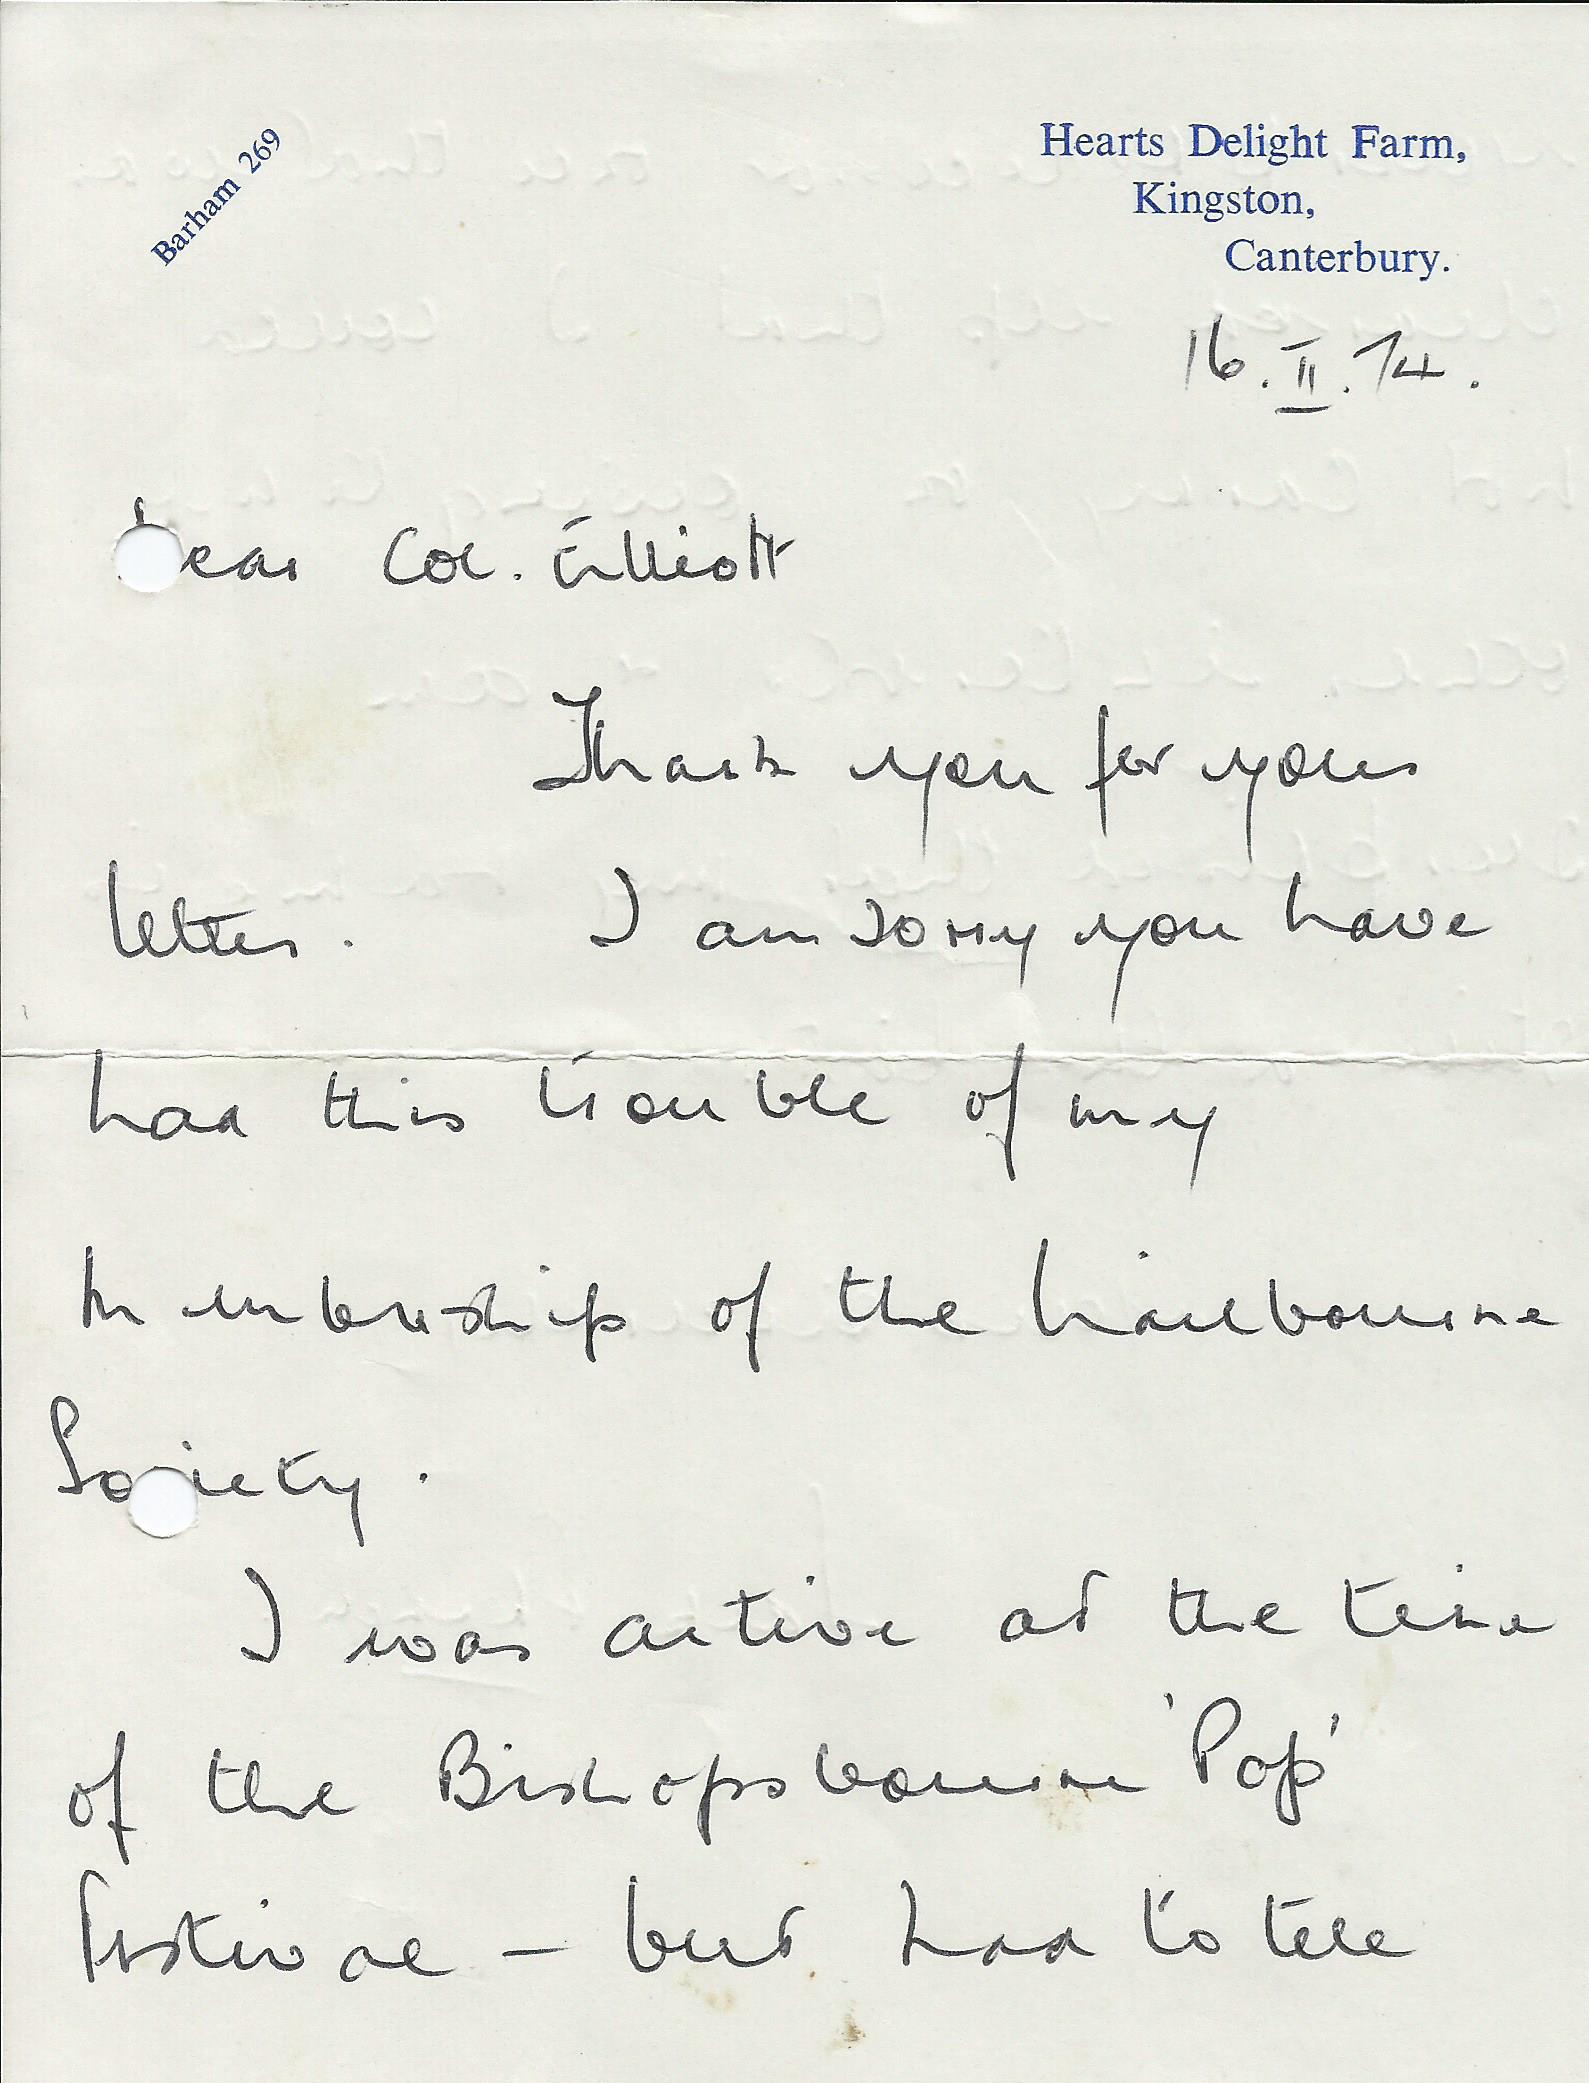 Barham 269
Hearts Delight Farm,
Kingston,
Canterbury.
16.II.74.
Dear Col. Elliott
Thank you for your
letter. I am sorry you have
had this trouble of my
membership of the Nailbourne
Society.
I was active at the time
of the Bishopsbourne 'Pop'
festival – but had to tell